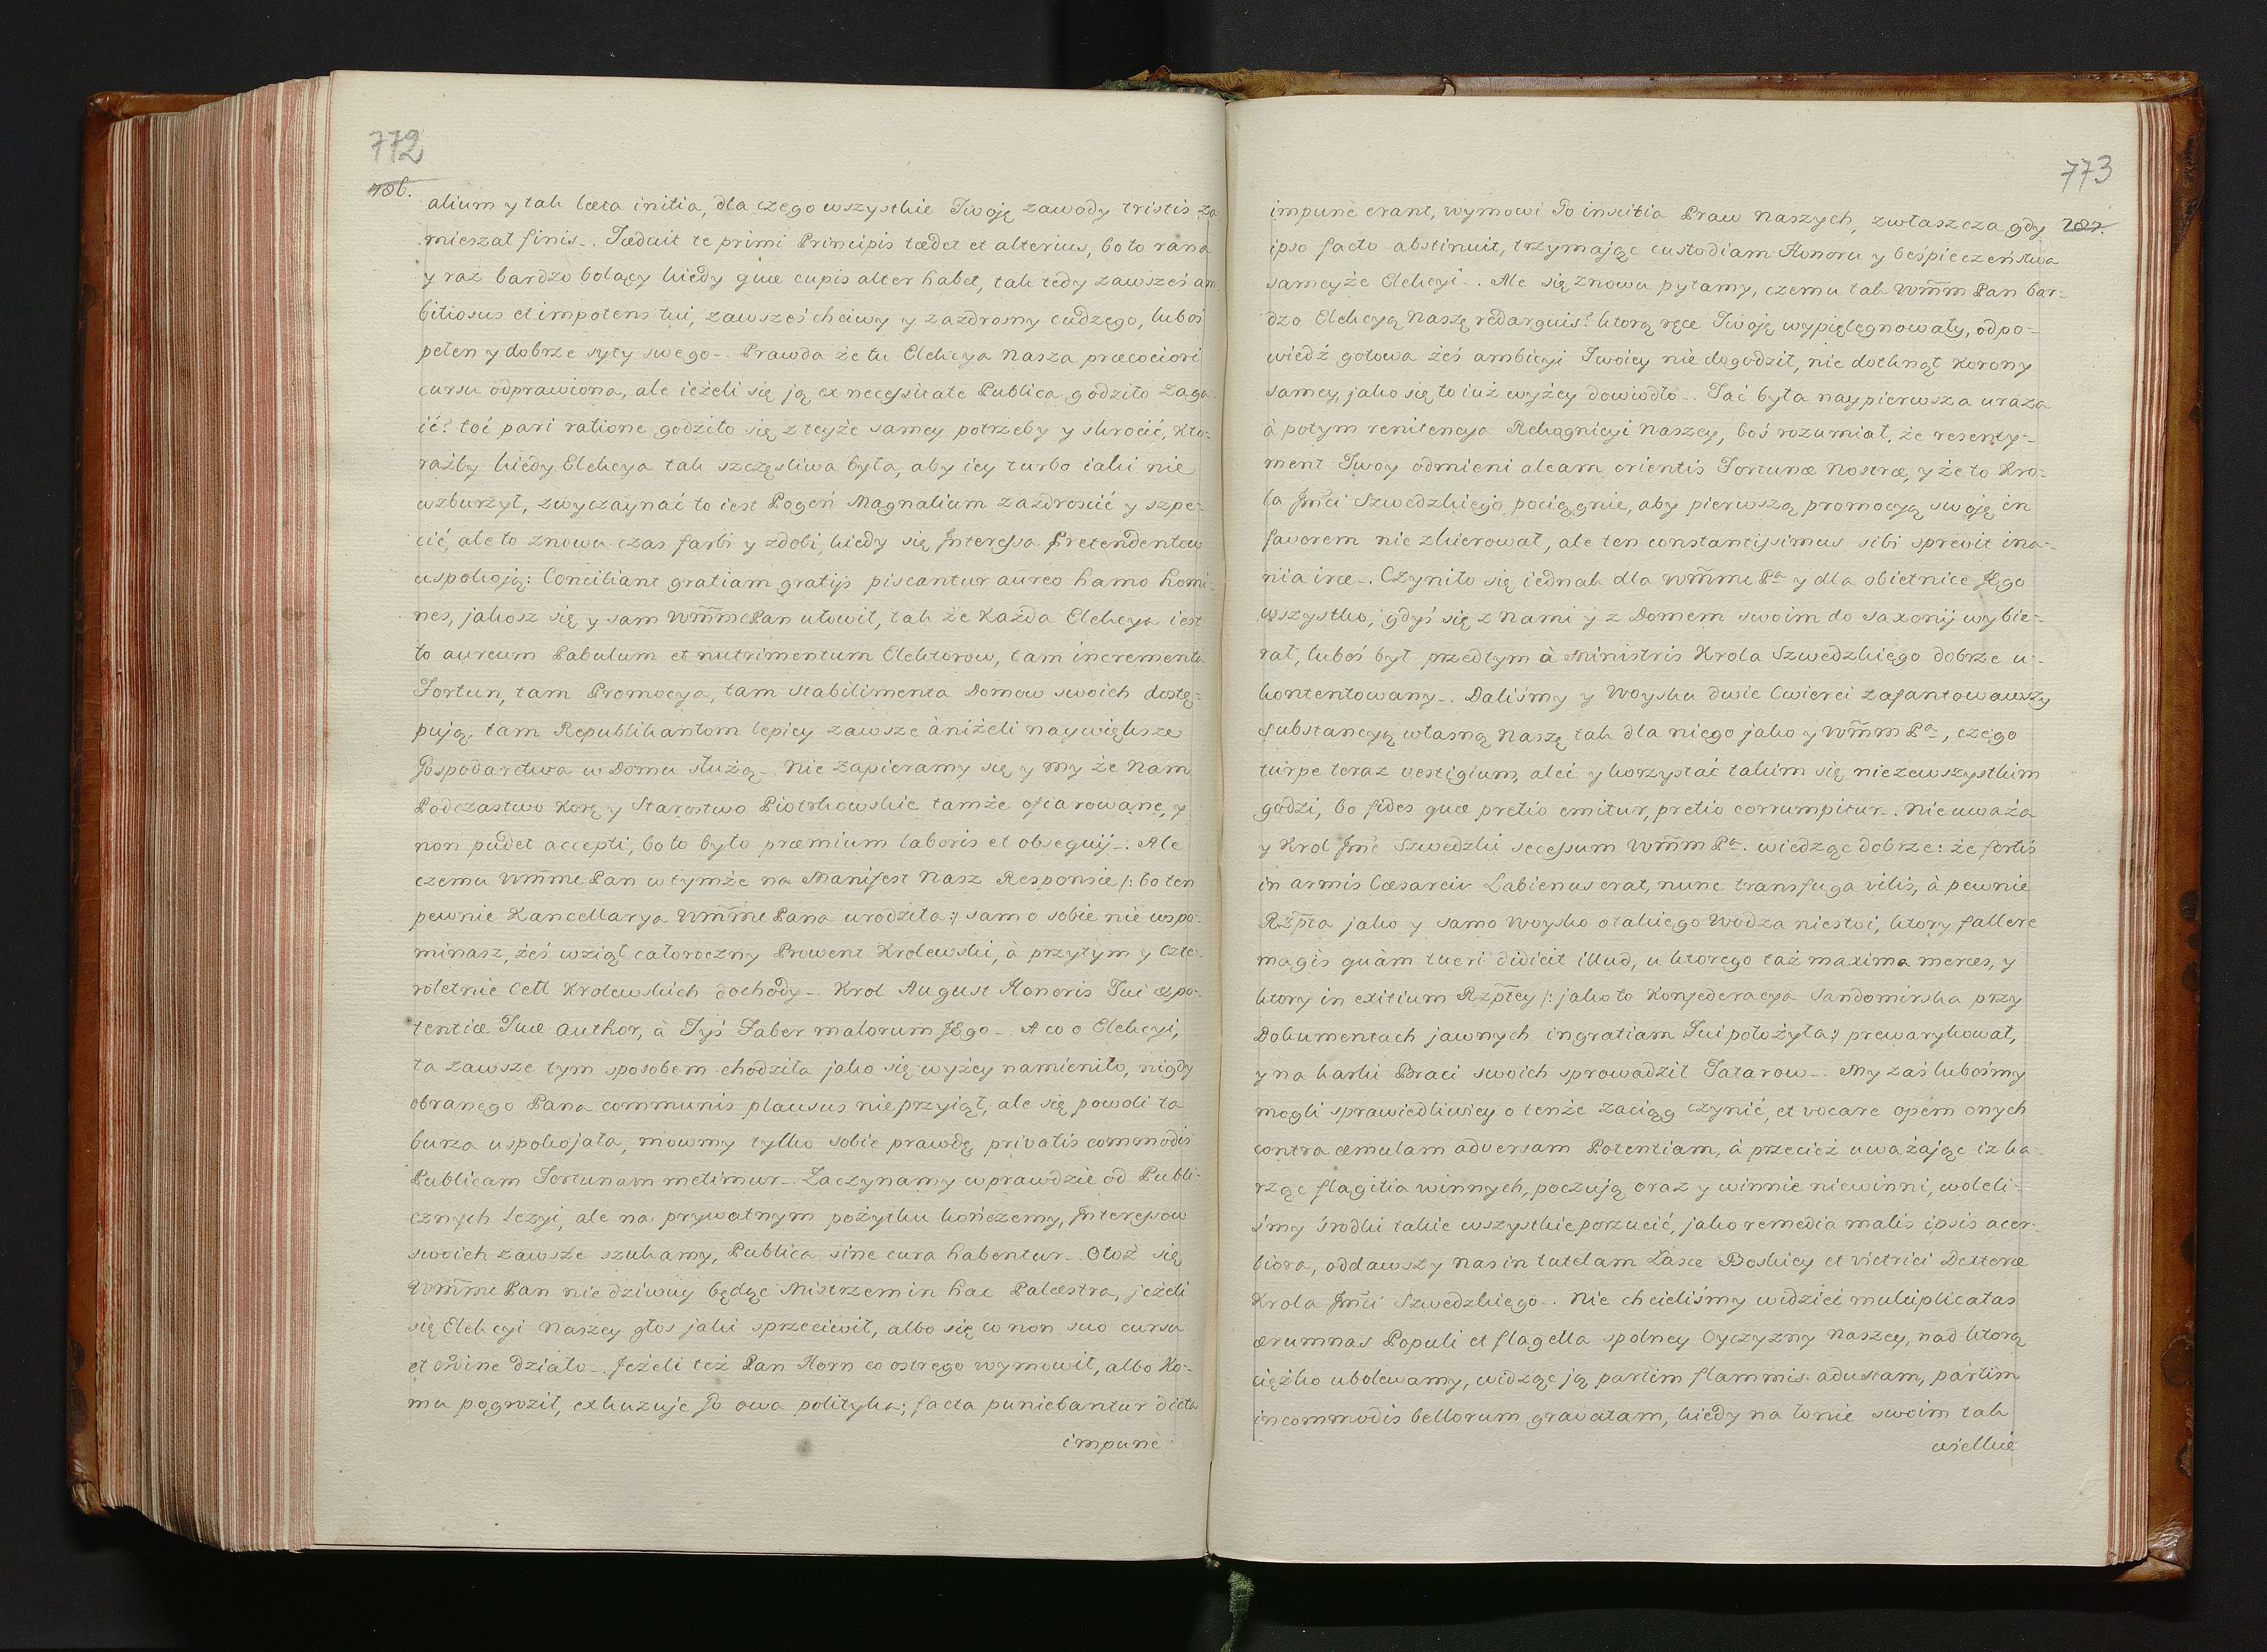 772
786.
alium y tak læta initia, dla czego wszystkie Twoję zawody tristis za
mieszał finis_. Tæduit te primi Principis tædet et alterius, bo to rana
y raz bardzo bolący kiedy quæ cupis alter habet, tak tedy zawsześ am-
bitiosus et impotens tui, zawsześ chciwy y zazdrosny cudzęgo, luboś
pełen y dobrze syty swego_. Prawda że tu Elekcya Nasza præcociori
cursu odprawiona, ale ieżeli się ją ex necessitate Publica godziło zaga-
ić? toć pari ratione godziło się z teyże samey potrzeby y skrocić, Kto-
raźby kiedy Elekcya tak szczęsliwa była, aby icy turbo iaki nie
wzburzył, zwyczaynać to iest Pogeń Magnalium zazdroscić y szpe-
cić, ale to znowu czas farbi y zdobi, kiedy się Interessa Pretendentow
uspokoją: Conciliant gratiam gratijs piscantur aureo hamo homi-
nes, jakosz się y sam WmmePan ułowił, tak że Każda Elekcya iest
to aureum Pabulum et nutrimentum Elektorow, tam incrementa
Fortun, tam Promocya, tam stabilimenta Domow swoich dostę-
pują, tam Republikantom lepiey zawsze àniżeli naywiększe
Gospodarctwa w Domu służą_. Nie zapieramy się y my że Nam
Podczastwo Korę y Starostwo Piotrkowskie tamże ofiarowane, y
non pudet accepti, bo to było præmium laboris et obsequij_. Ale
czemu WmmePan w tymże na Manifest Nasz Responsie /: bo ten
pewnie Kancellarya Wmme Pana urodziła :/ sam o sobie nie wspo-
minasz, żeś wziął całoroczny Prowent Krolewski, à przytym y Czte-
roletnie Cell Krolewskich dochody_. Krol August Honoris Tui et po-
tentiæ Tuæ Author, à Tyś Faber malorum JEgo_. A co o Elekcyi,
ta zawsze tym sposobem chodziła jako się wyżey namieniło, nigdy
obranego Pana communis plausus nie przyiął, ale się powoli ta
burza uspokojała, mowmy tylko sobie prawdę, privatis commodis
Publicam Fortunam metimur_. Zaczynamy wprawdzie od Publi-
cznych lezyi, ale na prywatnym pożytku kończemy, Interessow
swoich zawsze szukamy, Publica sine cura habentur_. Otoż się
Wmme Pan nie dziwuy będąc Mistrzem in hac Palæstra, jeżeli
się Elekcyi Naszey głos jaki sprzeciwił, albo się co non suo cursu
et ordine działo_. Jeżeli też Pan Horn co ostrego wymowił, albo Ko-
mu pogroził, exkuzuje Go owa polityka; facta puniebantur dicta
impunè
773
787.
impunè erant, wymowi Go inscitia Praw Naszych, zwłaszcza gdy
ipso facto abstinuit, trzymając custodiam Honoru y beśpieczeństwa
sameyże Elekcyi_. Ale się znowu pytamy, czemu tak Wmm Pan bar-
dzo Elekcyą Naszę redarguis? ktorą ręce Twoję wypięlęgnowały, odpo-
wiedź gotowa żeś ambicyi Twoiey nie dogodził, nie dotknął Korony
samey, jako się to iuż wyżey dowiodło_. Tać była naypierwsza uraza
à potym renitencya Rekognicyi Naszey, boś rozumiał, że resenty-
ment Twoy odmieni aleam orientis Fortunæ Nostræ, y że to Kro-
la Jmci Szwedzkiego pociągnie, aby pierwszą promocyą swoję in
favorem nie zkierował, ale ten constantissimus sibi sprevit ina-
nia iræ_. Czyniło się iednak dla Wmme Pa y dla obietnice JEgo
wszystko, gdyś się z Nami y z Domem swoim do Saxonij wybie-
rał, luboś był przedtym à Ministris Krola Szwedzkiego dobrze u-
kontentowany_. Daliśmy y Woysku dwie Cwierci zafantowawszy
Substancyą własną Naszę tak dla niego jako y Wmm Pa, czego
turpe teraz vestigium, aleć y korzystać takim się niezewszystkim
godzi, bo fides quæ pretio emitur, pretio corrumpitur_. Nie uważa
y Krol Jmc Szwedzki secessum Wmm Pa. wiedząc dobrze: że fortis
in armis Cæsareis Labienus erat, nunc transfuga vilis, à pewnie
Rzpta jako y samo Woysko o takiego Wodza niestoi, ktory fallere
magis quàm tueri didicit illud, u ktorego taż maxima merces, y
ktory in exitium Rzptey /: jako to Konfederacya Sandomirska przy
Dokumentach jawnych ingratiam Tui położyła :/ prewarykował,
y na karki Braci swoich sprowadził Tatarow_. My zaś lubośmy
mogli sprawiedliwiey o tenże zaciąg czynić, et vocare opem onych
contra æmulam adversam Potentiam, à przecież uważając iz ka-
rząc flagitia winnych, poczują oraz y winnie niewinni, woleli-
śmy środki takie wszystkie porzucić, jako remedia malis ipsis acer-
biora, oddawszy nas in tutelam Łasce Boskiey et victrici Dexteræ
Krola Jmci Szwedzkiego_. Nie chcieliśmy widzieć multiplicatas
ærumnas Populi et flagella spolney Oyczyzny Naszey, nad ktorą
ciężko ubolewamy, widząc ją partim flammis adustam, partim
incommodis bellorum gravatam, kiedy na łonie swoim tak
wielkie